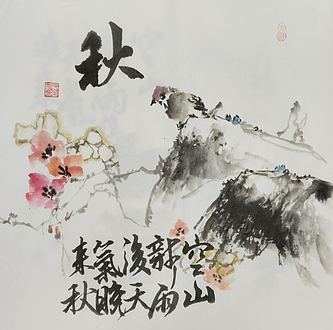 秋
空山
新雨
後天
氣晚
来秋